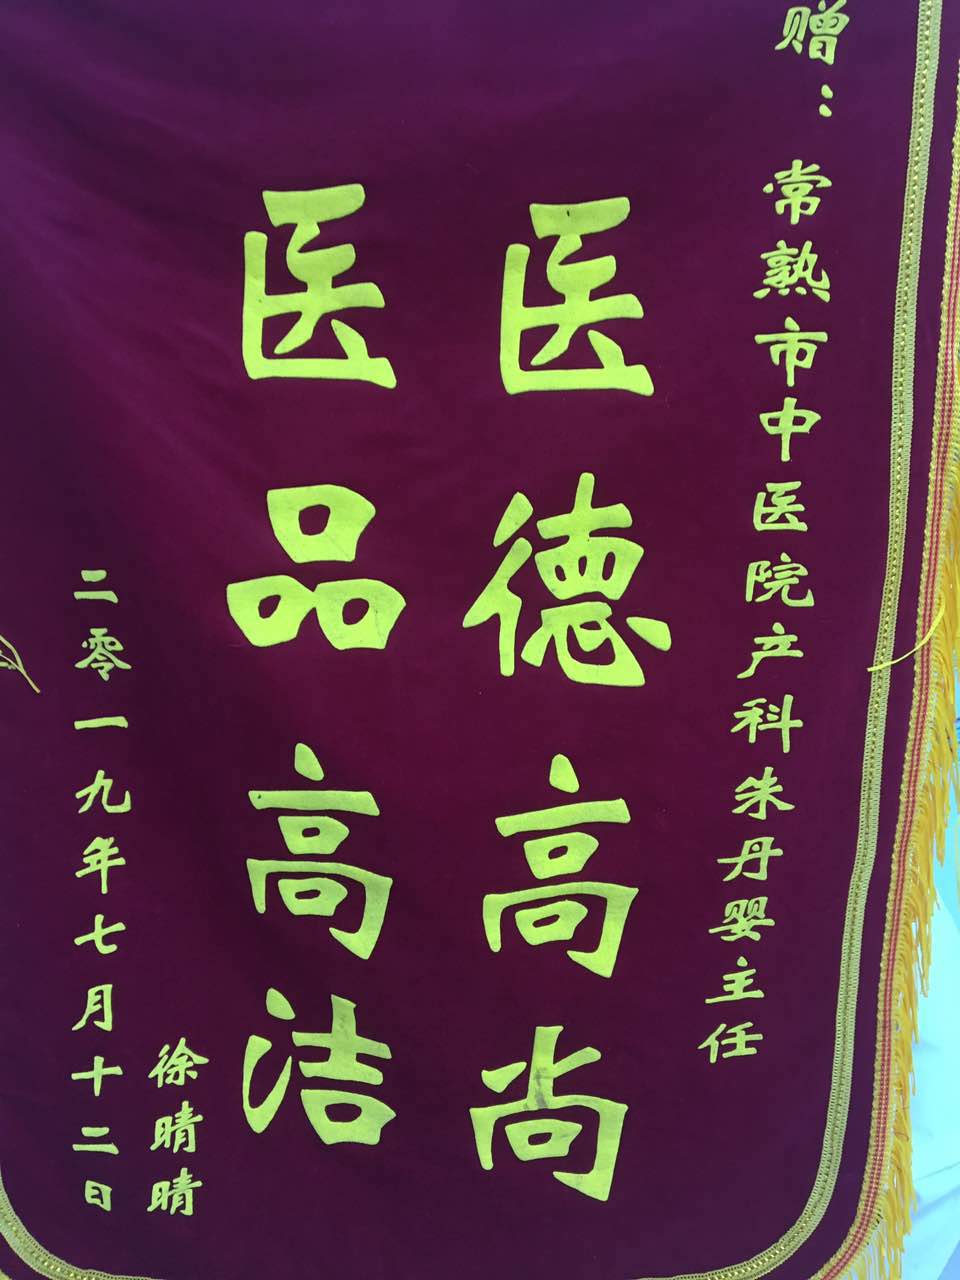 赠：常熟市中医院产科朱丹婴主任
医德高尚
医品高洁
徐晴晴
二零一九年七月十二日